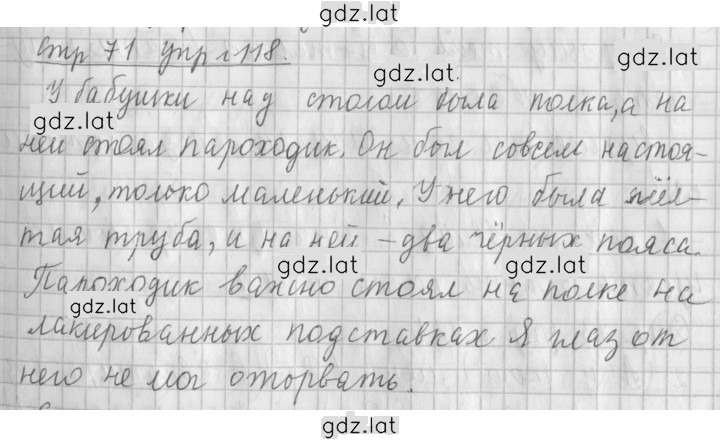 gdz.lat
стр 71 упр г 118.
gdz.lat
У бабушки над столом была полка, а на
gdz.lat
ней стоял пароходик. Он был совсем настоя-
щий, только маленький. У него была жёл-
тая труба, и на ней - два чёрных пояса.
gdz.lat gdz.lat
Пароходик важно стоял на полке на
gdz.lat
лакированных подставках Я глаз от
него не мог оторвать.
gdz.lat